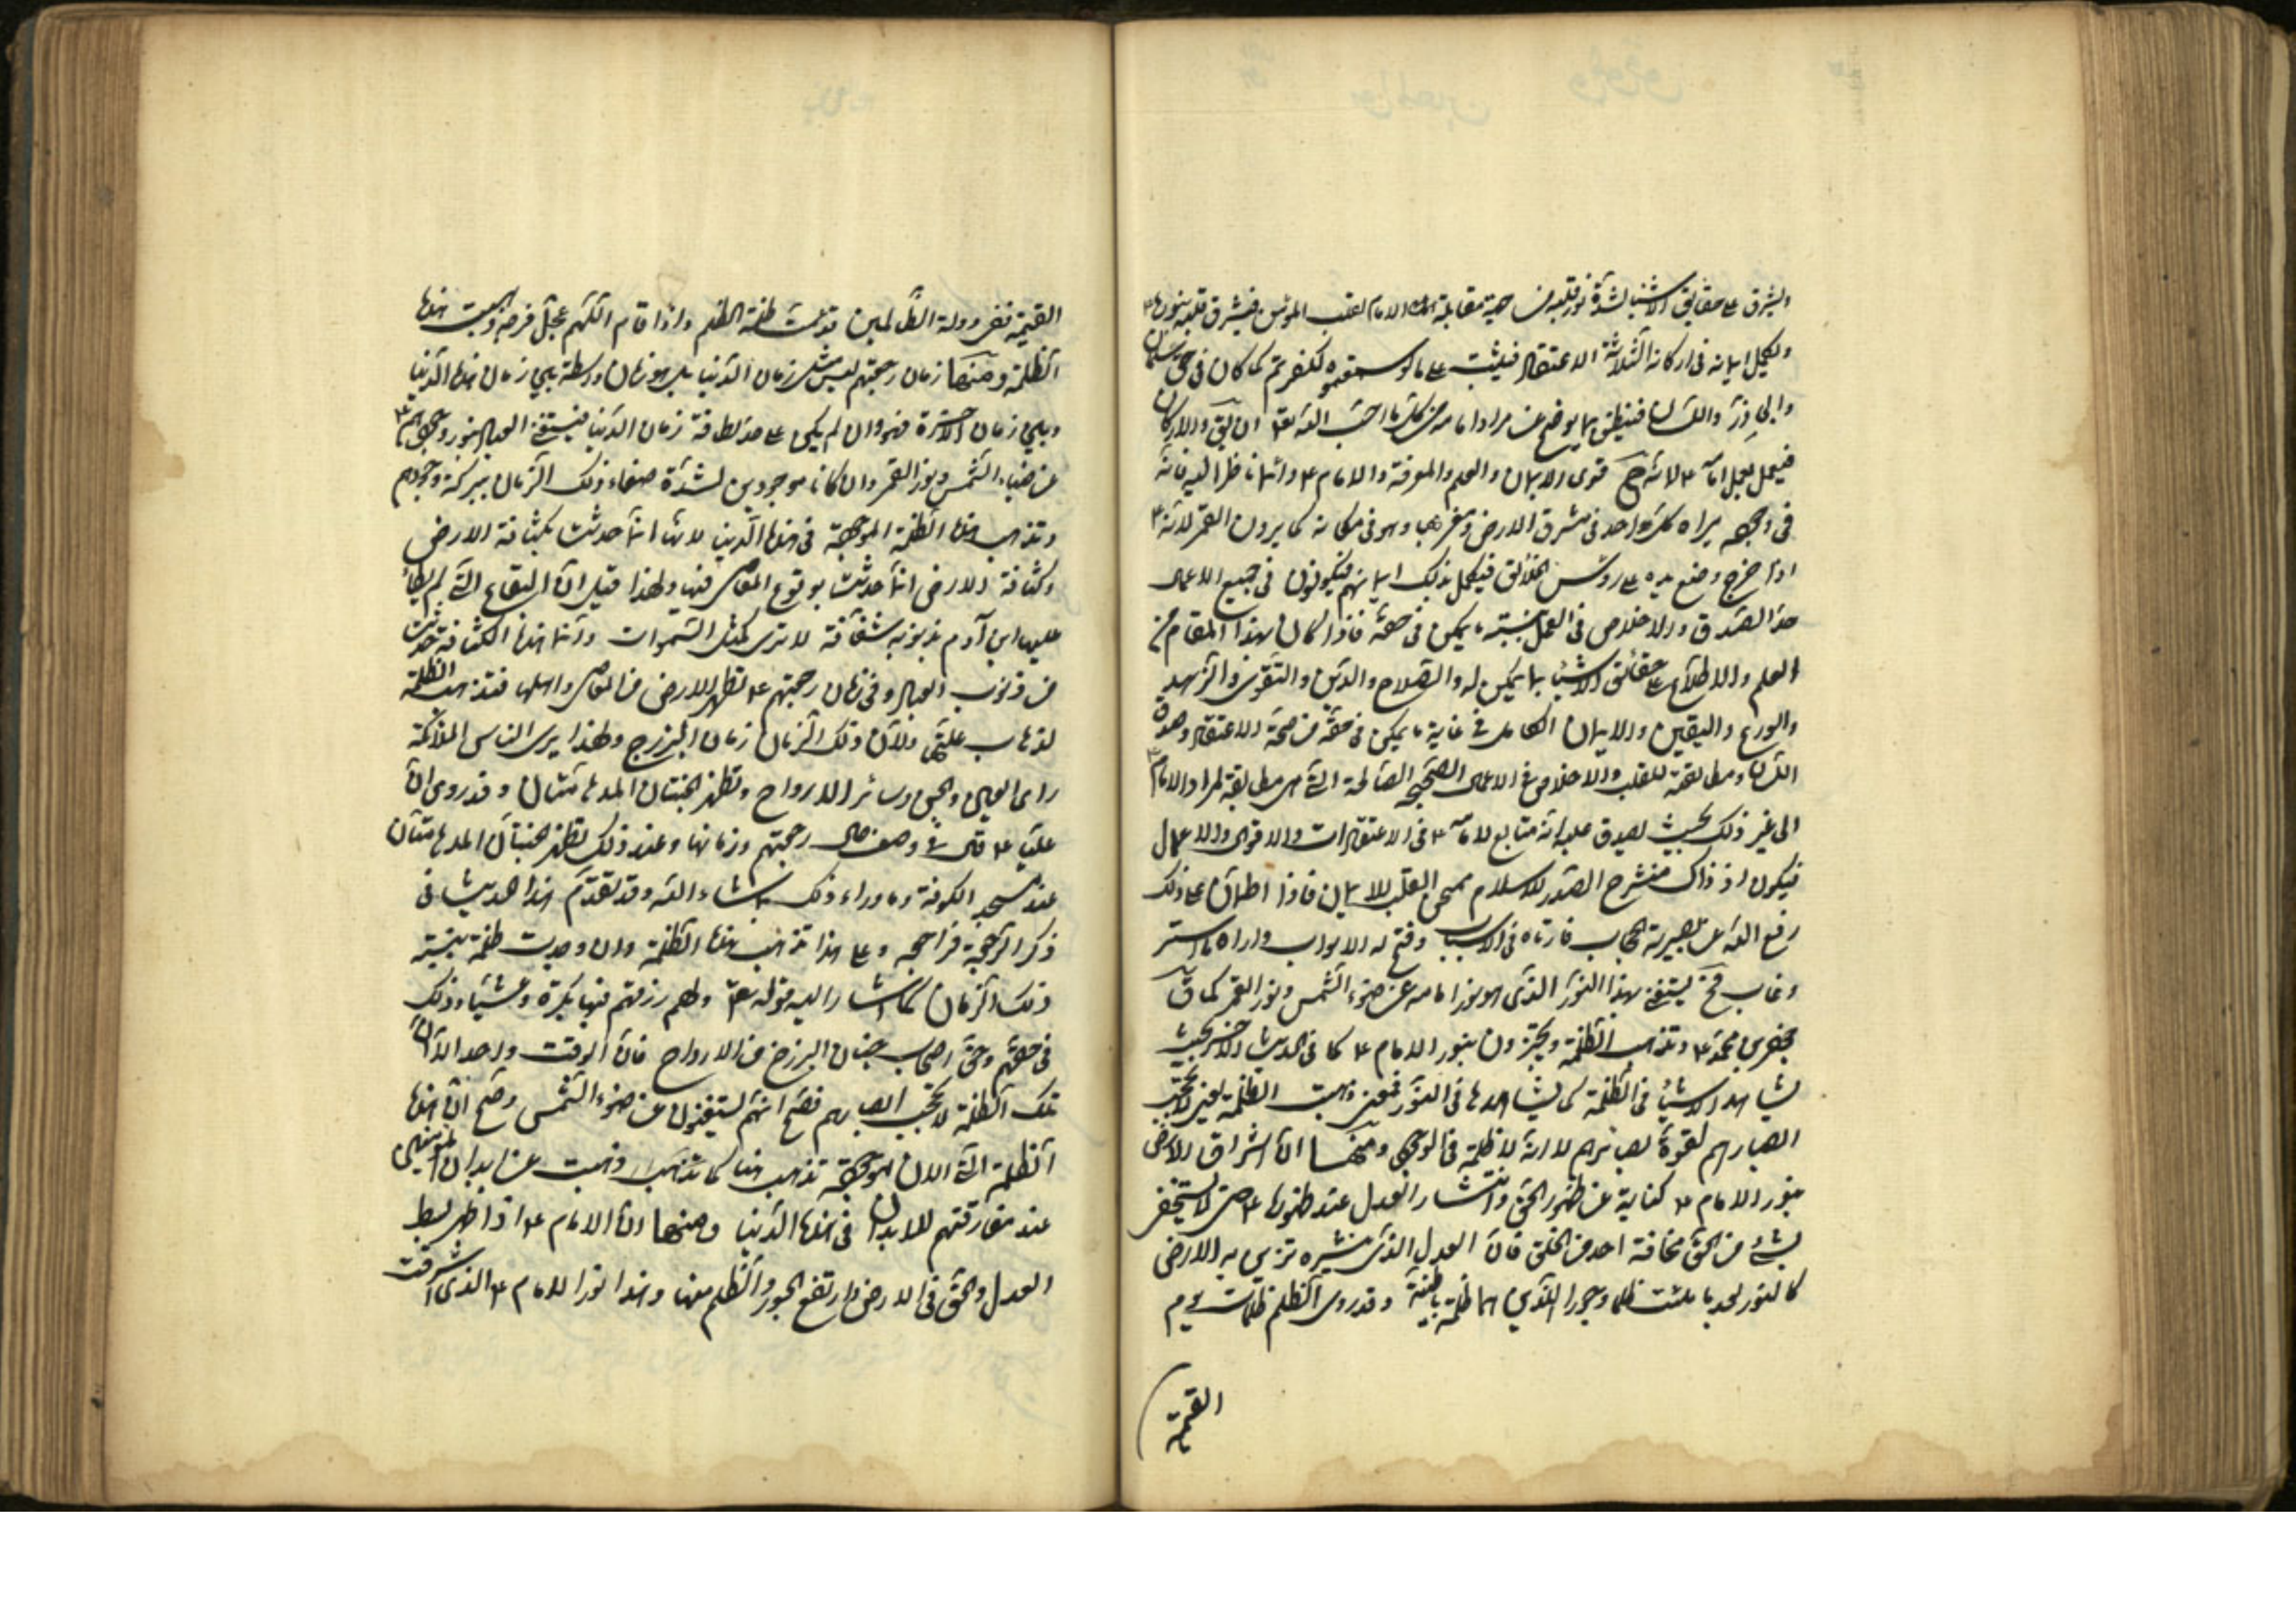 ويشرق على حقايق الاشياء لشدة نور قلبه من جهة مقابلة الامام لقلب المؤمن فيشرق قلبه بنوره ع
ويكمل ايمانه في اركانه الثلاثة الاعتقاد فيثبت على ما لو سمعتموه لكفرتم كما كان في حق سلمان
وابي ذر واللسان فينطق بما يوضح عن مراد امامه من كل ما احب الله تع ان والاركان
فيعمل بعمل امامه ع لانه ح قوي الايمان والعلم والمعرفة والامام ع دائما ناظر اليه فانه
في وجهه يراه كل واحد في مشرق الارض ومغربها وهو في مكانه كما يرون القمر لانه ع
اذا خرج وضع يده على روس الخلائق فيكمل بذلك ايمانهم فيكونون في جميع الاعمال
حد الصدق والاخلاص في العمل بنسبة ما يمكن في حقه فاذا كان بهذا المقام من
العلم والاطلاع على حقائق الاشياء بما يمكن له والصلاح والدين والتقوى والزهد
والورع واليقين والايمان الكامل في غاية ما يمكن في حقه من صحة الاعتقاد وصدق
اللسان ومطابقته للقلب والاخلاص في الاعمال الصحيحة الصالحة التي هي مطابقة لمراد الامام ع
الى غير ذلك بحيث يصدق عليه انه متابع لامامه ع في الاعتقادات والاقوال والاعمال
فيكون اذ ذاك منشرح الصدر للاسلام القلب للايمان فاذا اطمأن على ذلك
رفع الله عن بصيرته الحجاب في الاسباب وفتح له الابواب واراه ما استتر
وغاب فح يستغني بهذا النور الذي هو نور امامه عن ضوء الشمس ونور القمر كما قال
جعفر بن محمد ع وتذهب الظلمة ويجتزون بنور الامام ع كما في الحديث الاخر بحيث
يشاهد الاشياء في الظلمة كما يشاهدها في النور فمعنى ذهبت الظلمة يعني لا تحجب
ابصارهم لقوة بصائرهم لا انه لا ظلمة في الوجود ومنها ان اشراق الارض
بنور الامام ع كناية عن ظهور الحق وانتشار العدل عند ظهوره ع حتى لا يستخفي
بشئ من الحق مخافة احد من الخلق فان العدل الذي ينشره تزين به الارض
كالنور بعد ما ملئت ظلما وجورا اللذين هما ظلمة باطنة وقد روي الظلم ظلمات يوم
القيمة
القيمة ففي دولة الظالمين قد ملئت ظلمة الظلم واذا قام قائمهم عجل الله فرجه ذهبت هذه
الظلمة ومنها زمان رجعتهم ليس مثل زمان الدنيا بل هو زمان واسطة بين زمان هذه الدنيا
وبين زمان الاخرة فهو وان لم يكن على حد لطافة زمان الدنيا فيستغني العباد بنور وجودهم ع
عن ضياء الشمس ونور القمر وان كانا موجودين لشدة صفاء ذلك الزمان ببركة وجودهم
وتذهب هذه الظلمة الموجودة في هذه الدنيا لانها انما حدثت بكثافة الارض
وكثافة الارض انما حدثت بوقوع المعاصي فيها ولهذا قيل ان البقاع التي لم يطأ
عليها ابن آدم بذنوبه شفافة لا ترى كمثل السموات وانما هذه الكثافة حدثت
من ذنوب العباد وفي زمان رجعتهم ع تطهر الارض من المعاصي واهلها فتذهب الظلمة
لذهاب علتها ولان ذلك الزمان زمان البرزخ ولهذا يرى الناس الملائكة
راي العين والجن وسائر الارواح وتظهر الجنتان المدهامتان وقد روي ان
عليا ع قال في وصف حال رجعتهم وزمانها وعند ذلك تظهر الجنتان المدهامتان
عند مسجد الكوفة وما وراء ذلك بما شاء الله وقد تقدم هذا الحديث في
ذكر الرجعة فراجعه وعلى هذا تذهب هذه الظلمة وان وجدت ظلمة بنسبة
ذلك الزمان كما اشار اليه قوله تع ولهم رزقهم فيها بكرة وعشيا وذلك
في حقهم وحق اصحاب جنان البرزخ من الارواح فان الوقت واحد الا ان
تلك الظلمة لا تحجب ابصارهم فصح انهم يستغنون عن ضوء الشمس وصح ان هذه
الظلمة التي الان موجودة تذهب هنا كما تذهب وذهبت عن ابدان المؤمنين
عند مفارقتهم للابدان في هذه الدنيا ومنها ان الامام ع اذا ظهر بسط
العدل والحق في الارض وارتفع الجور والظلم منها وهذا نور الامام ع الذي اشرقت